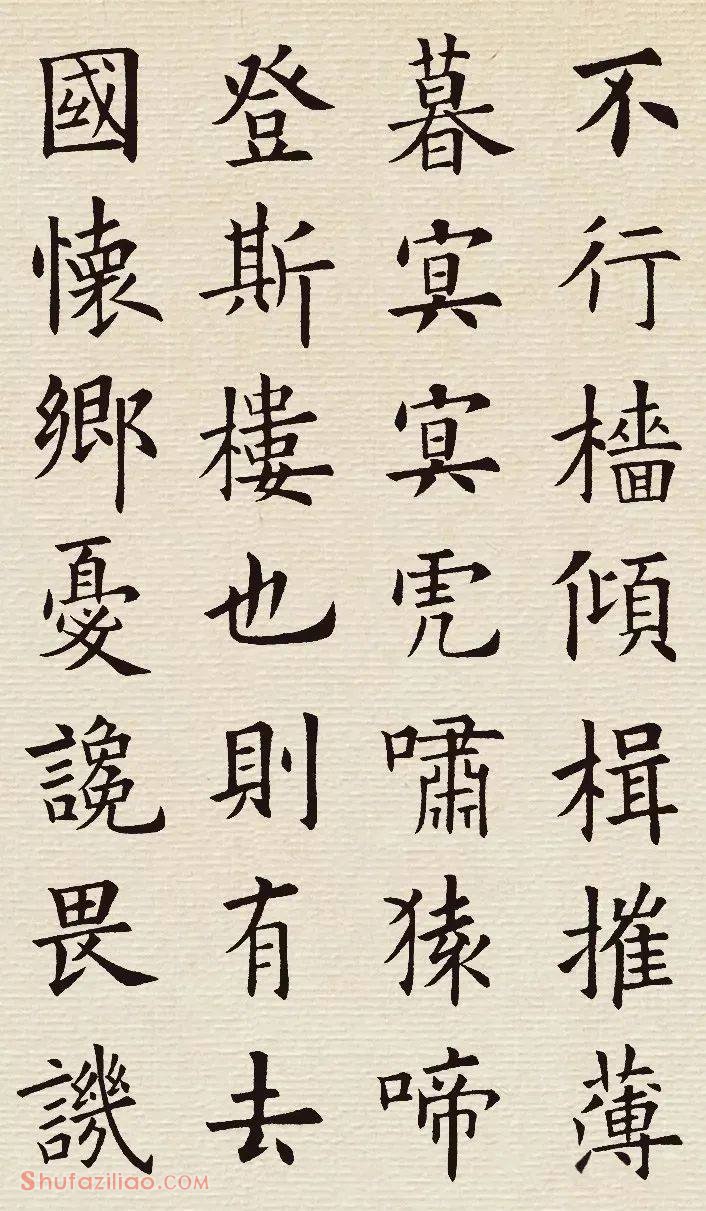 不行檣傾楫摧薄
暮冥冥虎嘯猿啼
登斯樓也則有去
國懷鄉憂讒畏譏
Shufaziliao.COM